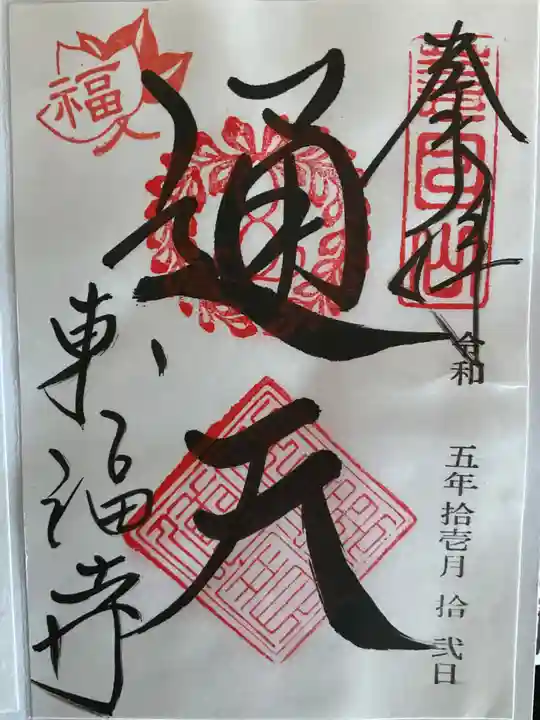 奉拝
令和 五年拾壱月 拾弐日
通天
福
東福寺